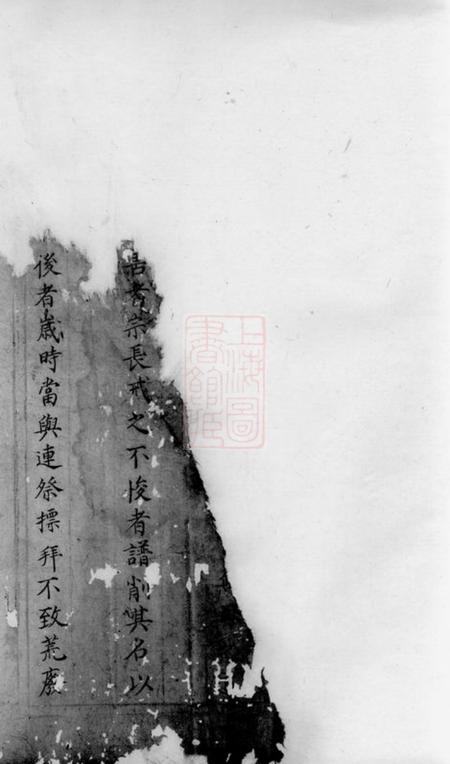 者宗長戒之不悛者譜削其名以
後者歲時當與連祭摽拜不致荒廢
上海圖書館藏